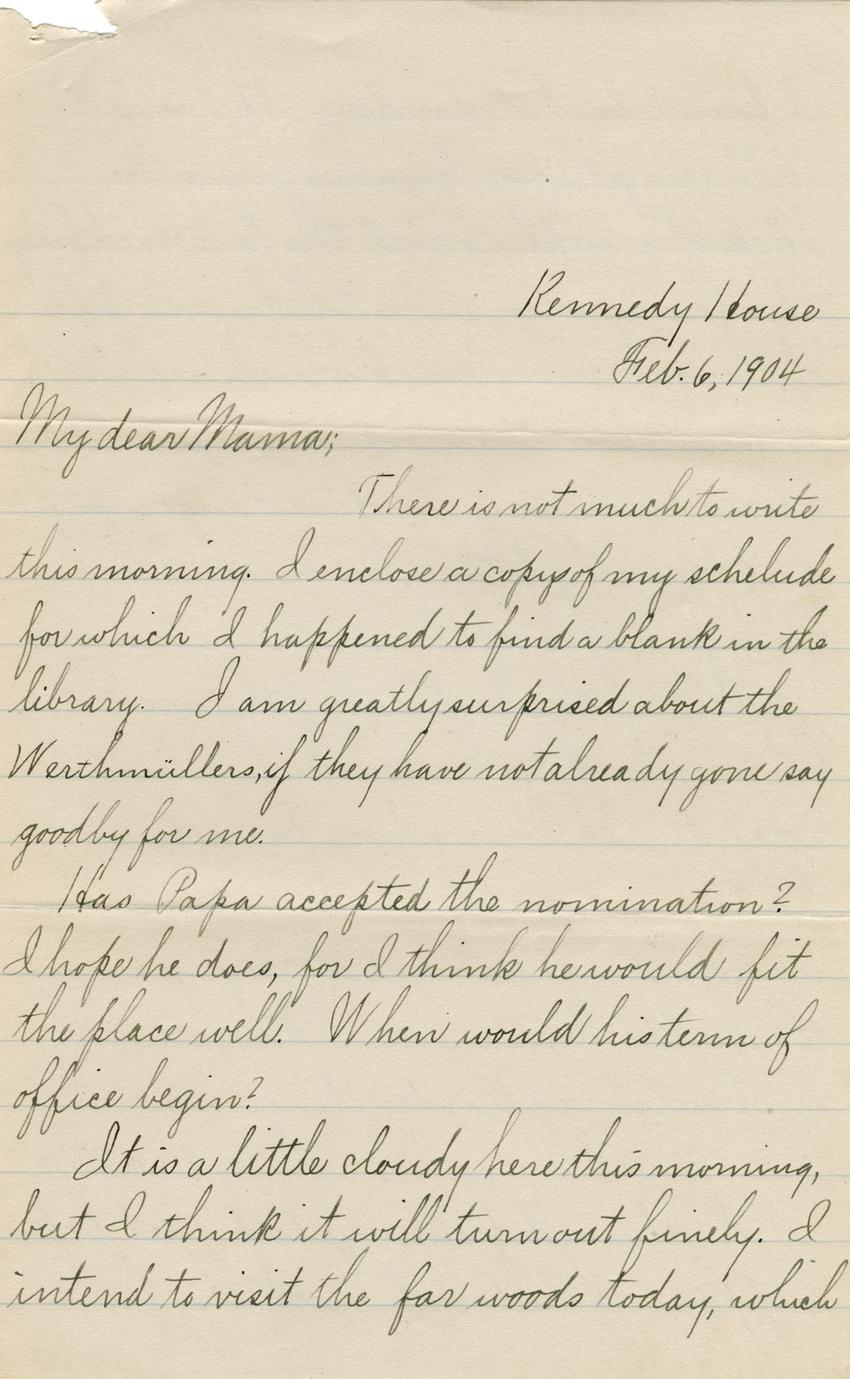 Kennedy House
Feb. 6, 1904
My dear Mama;
There is not much to write
this morning. I enclose a copy of my schelude
for which I happened to find a blank in the
library. I am greatly surprised about the
Werthmüllers, if they have not already gone say
goodby for me.
Has Papa accepted the nomination?
I hope he does, for I think he would fit
the place well. When would his term of
office begin?
It is a little cloudy here this morning,
but I think it will turn out finely. I
intend to visit the far woods today, which